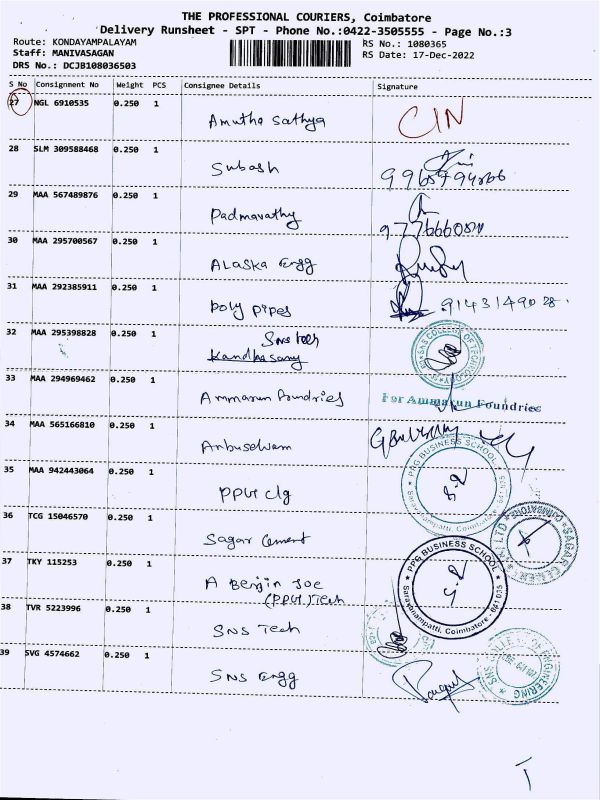 THE PROFESSIONAL COURIERS, Coimbatore
Delivery Runsheet - SPT - Phone No.:0422-3505555 - Page No.:3
Route: KONDAYAMPALAYAM
Staff: MANIVASAGAN
DRS No.: DCJB108036503
RS No.: 1080365
RS Date: 17-Dec-2022
S No Consignment No Weight PCS Consignee Details Signature
27 NGL 6910535 0.250 1
Amutha Sathya CIN
28 SLM 309588468 0.250 1
Subash
29 MAA 567489876 0.250 1
Padmavathy
30 MAA 295700567 0.250 1
Alaska Engg
31 MAA 292385911 0.250 1
Poly Pipes
32 MAA 295398828 0.250 1
SNS Tech
Kandhasamy
SNS COLLEGE OF TECHNOLOGY
33 MAA 294969462 0.250 1
Ammarun Foundries For Ammarun Foundries
34 MAA 565166810 0.250 1
Anbuselvam
35 MAA 942443064 0.250 1
PPG clg
PPG BUSINESS SCHOOL
Saravanampatti, Coimbatore - 641 035
36 TCG 15046570 0.250 1
Sagar Cement
37 TKY 115253 0.250 1
A Benjin Joe
(PPG) Tech
PPG BUSINESS SCHOOL
Saravanampatti, Coimbatore - 641 035
38 TVR 5223996 0.250 1
SNS Tech
39 SVG 4574662 0.250 1
SNS Engg